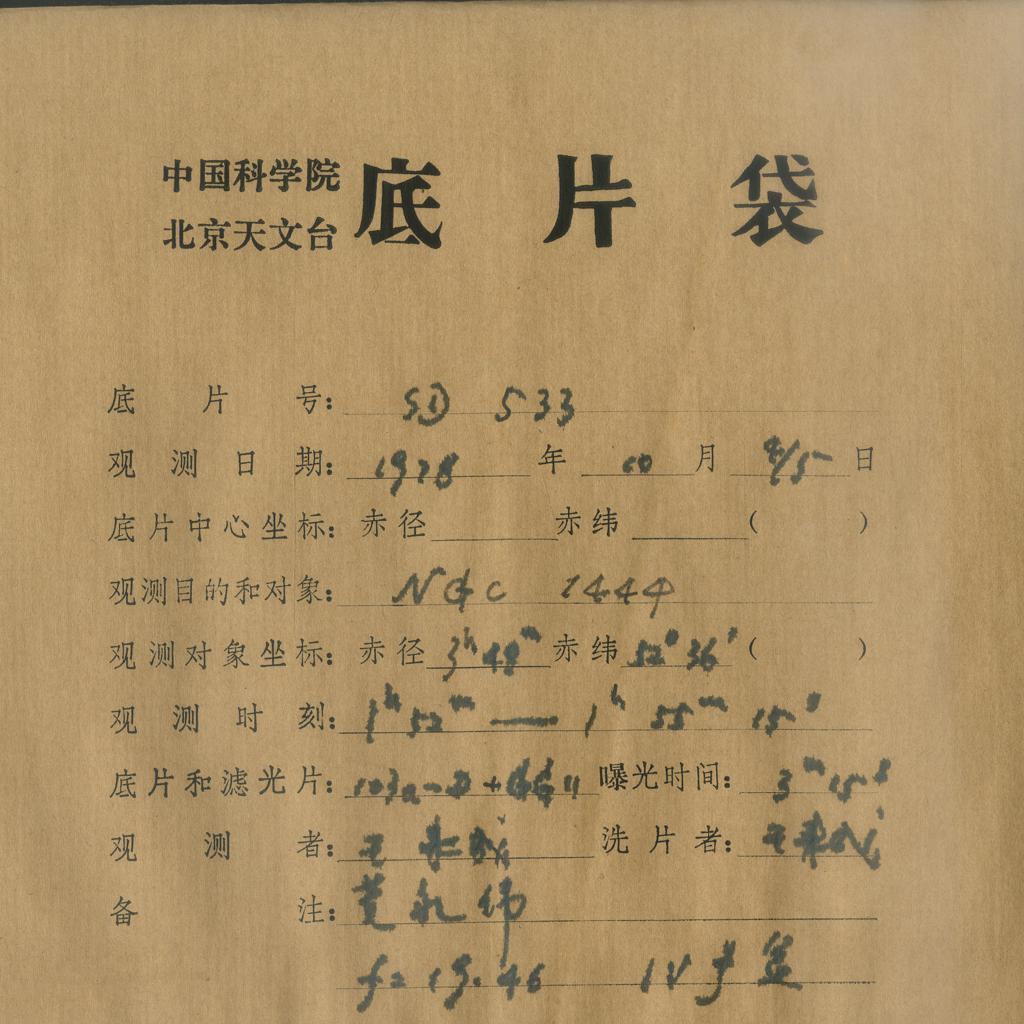 中国科学院
北京天文台
底片袋
底片号: SD 533
观测日期: 1978年10月4/5日
底片中心坐标: 赤径 赤纬 ( )
观测目的和对象: NGC 1444
观测对象坐标: 赤径 3h 48m 赤纬 52° 36' ( )
观测时刻: 1h 52m — 1h 55m 15s
底片和滤光片: 103a-D + GG11 曝光时间: 3m 15s
观测者: 王 洗片者: 王
备注:
f= 19.46